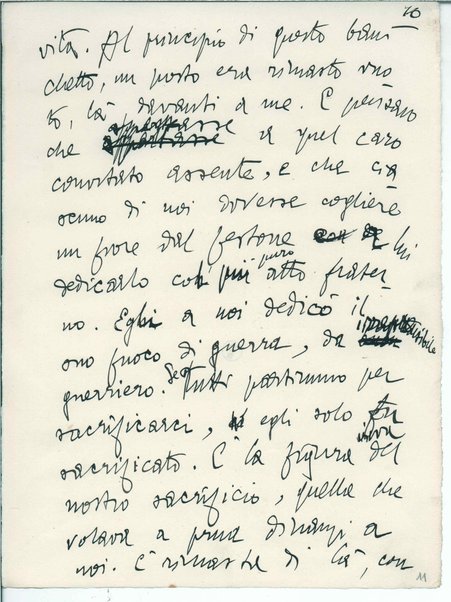 10
vita. Al principio di questo ban
chetto, un posto era rimasto vuo
to, là davanti a me. E pensano
che a quel caro
convitato assente, e che cia
scuno di noi dovesse cogliere
un fiore dal festone e a lui
dedicarlo col più puro atto frater
no. Egli a noi dedicò il
suo fuoco di guerra, da
guerriero. Se tutti partimmo per
sacrificarci, egli solo fu
sacrificato. È la figura viva del
nostro sacrificio, quella che
volava a prua dinanzi a
noi. È rimasta di là, con
11